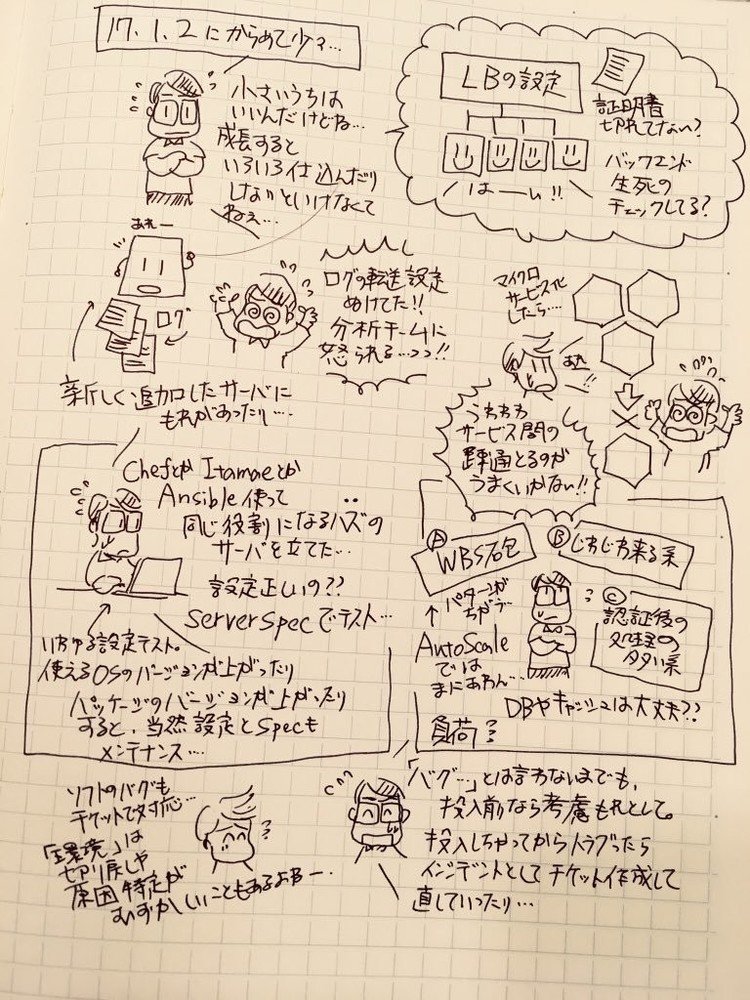 17.1.2にからめて少々…
小さいうちは
いいんだけどね…
成長すると
いろいろ仕込んだり
しないといけなくて
ねぇ…
LBの設定
証明書
切れてない?
はーい!!
バックエンド
生死の
チェックしてる?
あれー
ログ
新しく追加したサーバに
もれがあったり…
ログの転送設定
ぬけてた!!
分析チームに
怒られる…っっ!!
マイクロ
サービス化
したら…
あれ
!!
うわわわ
サービス間の
疎通とるのが
うまくいかない!!
ChefとかItamaeとか
Ansible使って
同じ役割になるハズの
サーバを立てた…
設定正しいの??
Serverspecでテスト…
いわゆる設定テスト。
使えるOSのバージョンが上がったり
パッケージのバージョンが上がったり
すると、当然設定とSpecも
メンテナンス…
A
WBS砲
B
じわじわ来る系
パターンが
ちがう…
C
認証後の
処理の
多い系
AutoScale
では
まにあわん…
DBやキャッシュは大丈夫??
負荷?
ソフトのバグも
チケットで対応…
「環境」は
切り戻しや
原因特定が
むずかしいこともあるよねー
「バグ…」とは言わないまでも、
投入前なら考慮もれとして。
投入しちゃってからトラブったら
インシデントとしてチケット作成して
直していったり…